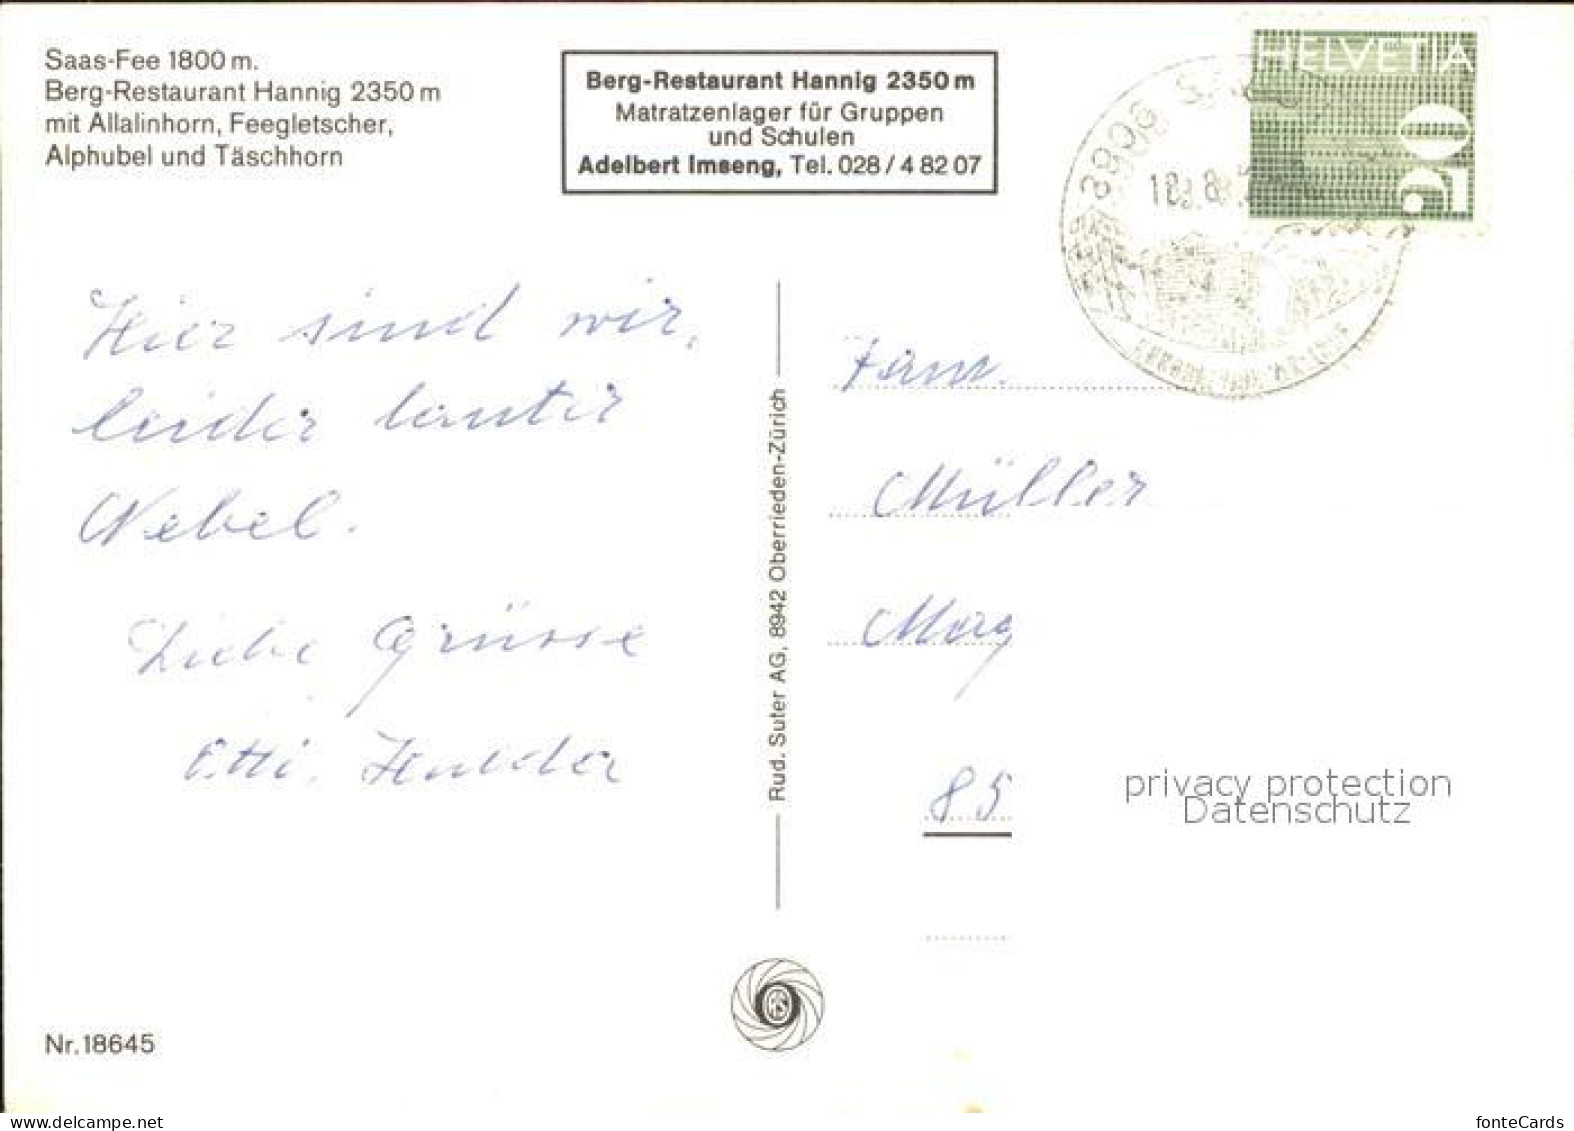 Saas-Fee 1800 m.
Berg-Restaurant Hannig 2350 m
mit Allalinhorn, Feegletscher,
Alphubel und Täschhorn
Berg-Restaurant Hannig 2350 m
Matratzenlager für Gruppen
und Schulen
Adelbert Imseng, Tel. 028 / 4 82 07
HELVETIA
10
3906
Hier sind wir,
leider lauter
Nebel.
Liebe Grüsse
Rud. Suter AG, 8942 Oberrieden-Zürich
Fam.
Müller
85
privacy protection
Datenschutz
Nr. 18645
fonteCards